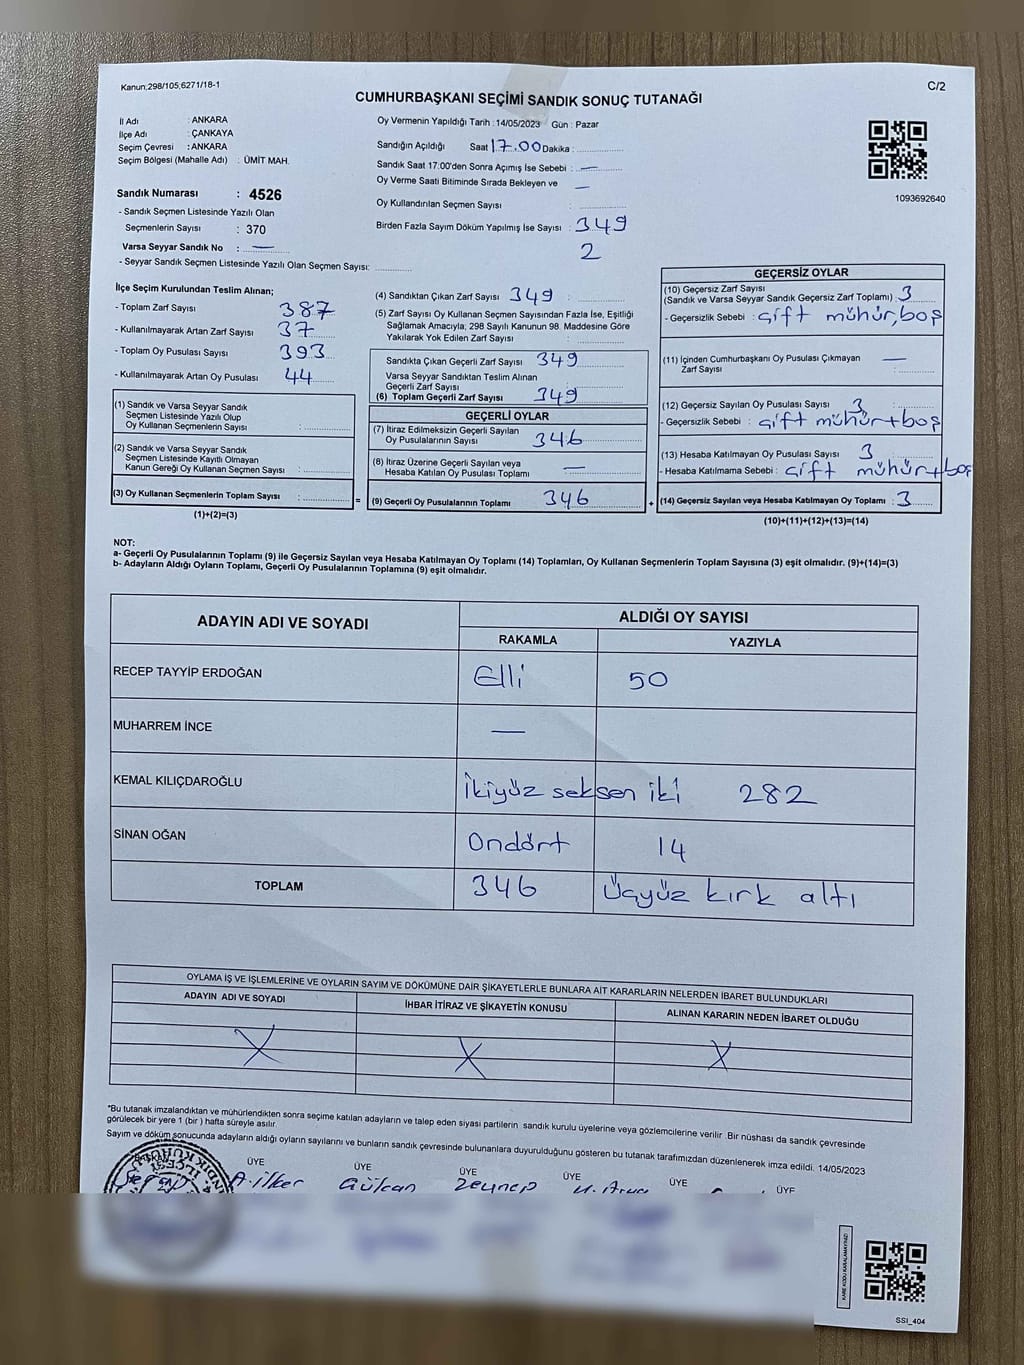 Kanun;298/105;6271/18-1
C/2
CUMHURBAŞKANI SEÇİMİ SANDIK SONUÇ TUTANAĞI
İl Adı : ANKARA
İlçe Adı : ÇANKAYA
Seçim Çevresi : ANKARA
Seçim Bölgesi (Mahalle Adı) : ÜMİT MAH.
Sandık Numarası : 4526
- Sandık Seçmen Listesinde Yazılı Olan
Seçmenlerin Sayısı : 370
Varsa Seyyar Sandık No : —
- Seyyar Sandık Seçmen Listesinde Yazılı Olan Seçmen Sayısı:
Oy Vermenin Yapıldığı Tarih : 14/05/2023 Gün : Pazar
Sandığın Açıldığı Saat 17.00 Dakika :
Sandık Saat 17:00'den Sonra Açımış İse Sebebi : —
Oy Verme Saati Bitiminde Sırada Bekleyen ve —
Oy Kullandırılan Seçmen Sayısı :
Birden Fazla Sayım Döküm Yapılmış İse Sayısı : 349
2
1093692640
İlçe Seçim Kurulundan Teslim Alınan;
- Toplam Zarf Sayısı 387
- Kullanılmayarak Artan Zarf Sayısı 37
- Toplam Oy Pusulası Sayısı 393
- Kullanılmayarak Artan Oy Pusulası 44
(1) Sandık ve Varsa Seyyar Sandık
Seçmen Listesinde Yazılı Olup
Oy Kullanan Seçmenlerin Sayısı :
(2) Sandık ve Varsa Seyyar Sandık
Seçmen Listesinde Kayıtlı Olmayan
Kanun Gereği Oy Kullanan Seçmen Sayısı :
(3) Oy Kullanan Seçmenlerin Toplam Sayısı : =
(1)+(2)=(3)
(4) Sandıktan Çıkan Zarf Sayısı 349 :
(5) Zarf Sayısı Oy Kullanan Seçmen Sayısından Fazla İse, Eşitliği
Sağlamak Amacıyla; 298 Sayılı Kanunun 98. Maddesine Göre
Yakılarak Yok Edilen Zarf Sayısı :
Sandıkta Çıkan Geçerli Zarf Sayısı 349
Varsa Seyyar Sandıktan Teslim Alınan
Geçerli Zarf Sayısı
(6) Toplam Geçerli Zarf Sayısı 349
GEÇERLİ OYLAR
(7) İtiraz Edilmeksizin Geçerli Sayılan
Oy Pusulalarının Sayısı 346
(8) İtiraz Üzerine Geçerli Sayılan veya
Hesaba Katılan Oy Pusulası Toplamı —
(9) Geçerli Oy Pusulalarının Toplamı 346 +
GEÇERSİZ OYLAR
(10) Geçersiz Zarf Sayısı
(Sandık ve Varsa Seyyar Sandık Geçersiz Zarf Toplamı) 3
- Geçersizlik Sebebi : çift mühür,boş
(11) İçinden Cumhurbaşkanı Oy Pusulası Çıkmayan —
Zarf Sayısı :
(12) Geçersiz Sayılan Oy Pusulası Sayısı 3
- Geçersizlik Sebebi : çift mühür+boş
(13) Hesaba Katılmayan Oy Pusulası Sayısı 3
- Hesaba Katılmama Sebebi : çift mühür+boş
(14) Geçersiz Sayılan veya Hesaba Katılmayan Oy Toplamı : 3
(10)+(11)+(12)+(13)=(14)
NOT:
a- Geçerli Oy Pusulalarının Toplamı (9) ile Geçersiz Sayılan veya Hesaba Katılmayan Oy Toplamı (14) Toplamları, Oy Kullanan Seçmenlerin Toplam Sayısına (3) eşit olmalıdır. (9)+(14)=(3)
b- Adayların Aldığı Oyların Toplamı, Geçerli Oy Pusulalarının Toplamına (9) eşit olmalıdır.
ADAYIN ADI VE SOYADI
ALDIĞI OY SAYISI
RAKAMLA YAZIYLA
RECEP TAYYİP ERDOĞAN Elli 50
MUHARREM İNCE —
KEMAL KILIÇDAROĞLU İkiyüz seksen iki 282
SİNAN OĞAN Ondört 14
TOPLAM 346 Üçyüz kırk altı
OYLAMA İŞ VE İŞLEMLERİNE VE OYLARIN SAYIM VE DÖKÜMÜNE DAİR ŞİKAYETLERLE BUNLARA AİT KARARLARIN NELERDEN İBARET BULUNDUKLARI
ADAYIN ADI VE SOYADI İHBAR İTİRAZ VE ŞİKAYETİN KONUSU ALINAN KARARIN NEDEN İBARET OLDUĞU
X X X
*Bu tutanak imzalandıktan ve mühürlendikten sonra seçime katılan adayların ve talep eden siyasi partilerin sandık kurulu üyelerine veya gözlemcilerine verilir .Bir nüshası da sandık çevresinde
görülecek bir yere 1 (bir ) hafta süreyle asılır.
Sayım ve döküm sonucunda adayların aldığı oyların sayılarını ve bunların sandık çevresinde bulunanlara duyurulduğunu gösteren bu tutanak tarafımızdan düzenlenerek imza edildi. 14/05/2023
ÜYE ÜYE ÜYE ÜYE ÜYE ÜYE
A.İlker Gülcan Zeynep
KARE KODU KARALAMAYINIZ!
SSI_404